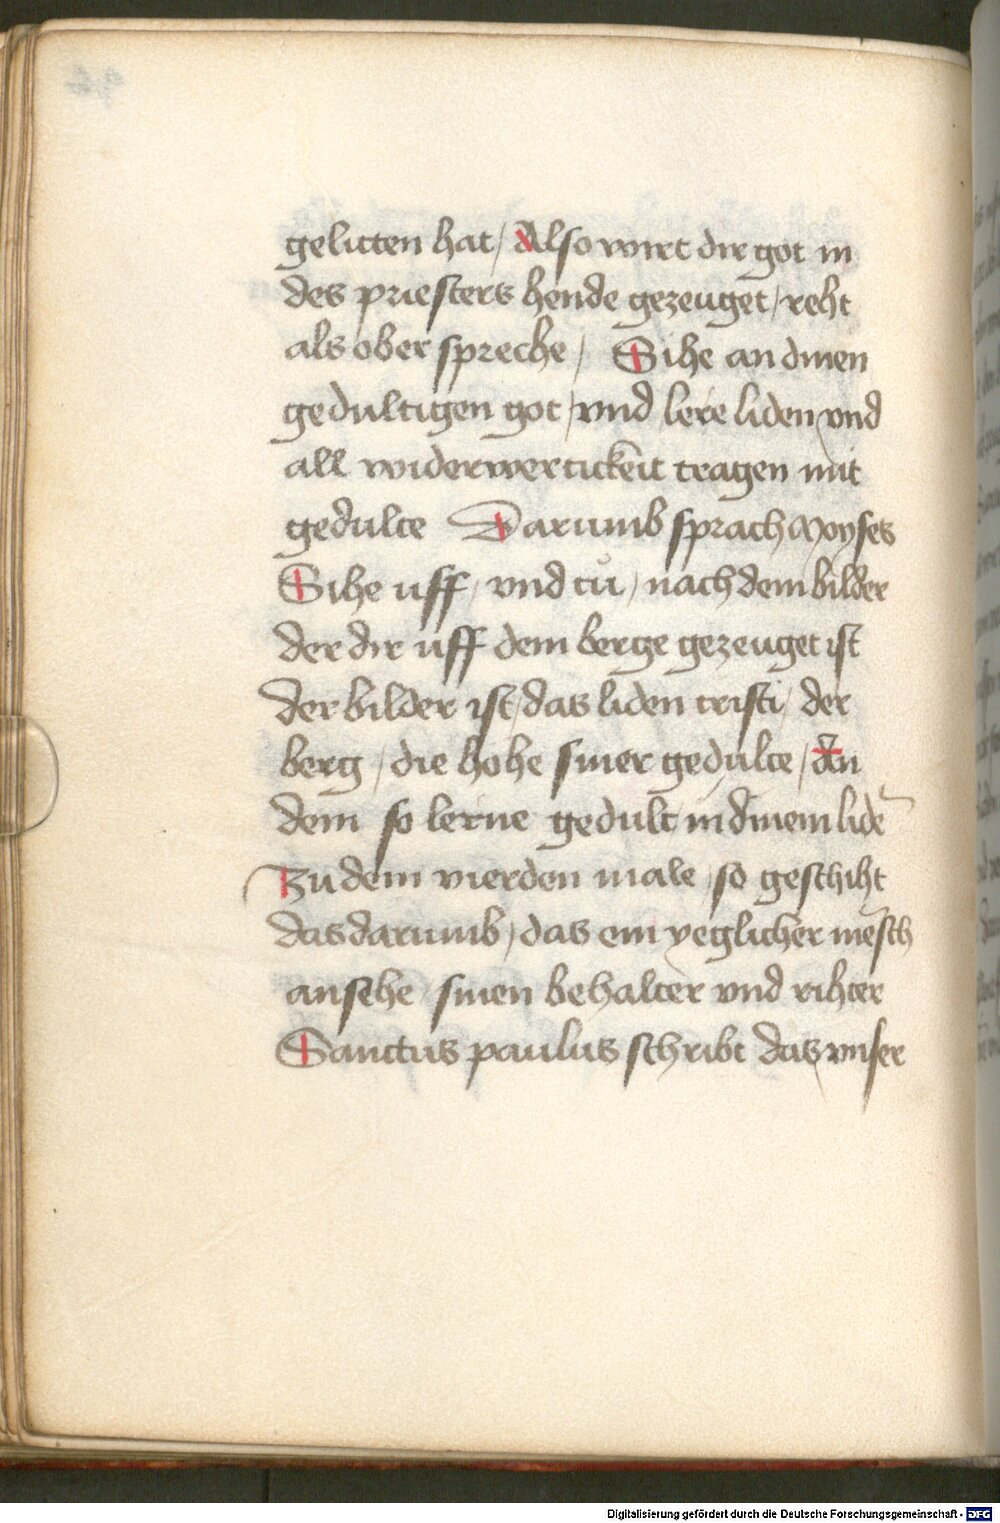 gelitten hat / Also wirt dir got in
des priesters hende gezeuget / reht
als ober spreche / Sihe an dinen
gedultigen got / vnd lere liden vnd
all widerwertickeit tragen mit
gedulte Darumb sprach Moyses
Sihe uff / vnd tů / nach dem bilder
der dir uff dem berge gezeuget ist
der bilder ist / das liden cristi / der
berg / die hohe siner gedulte / An
dem so lerne gedult in dinem lidē
Zu dem vierden male / so geschiht
das darumb / das ein yeglicher mēsch
ansehe / sinen behalter vnd rihter
Sanctus paulus schribt das vnser
Digitalisierung gefördert durch die Deutsche Forschungsgemeinschaft - DFG